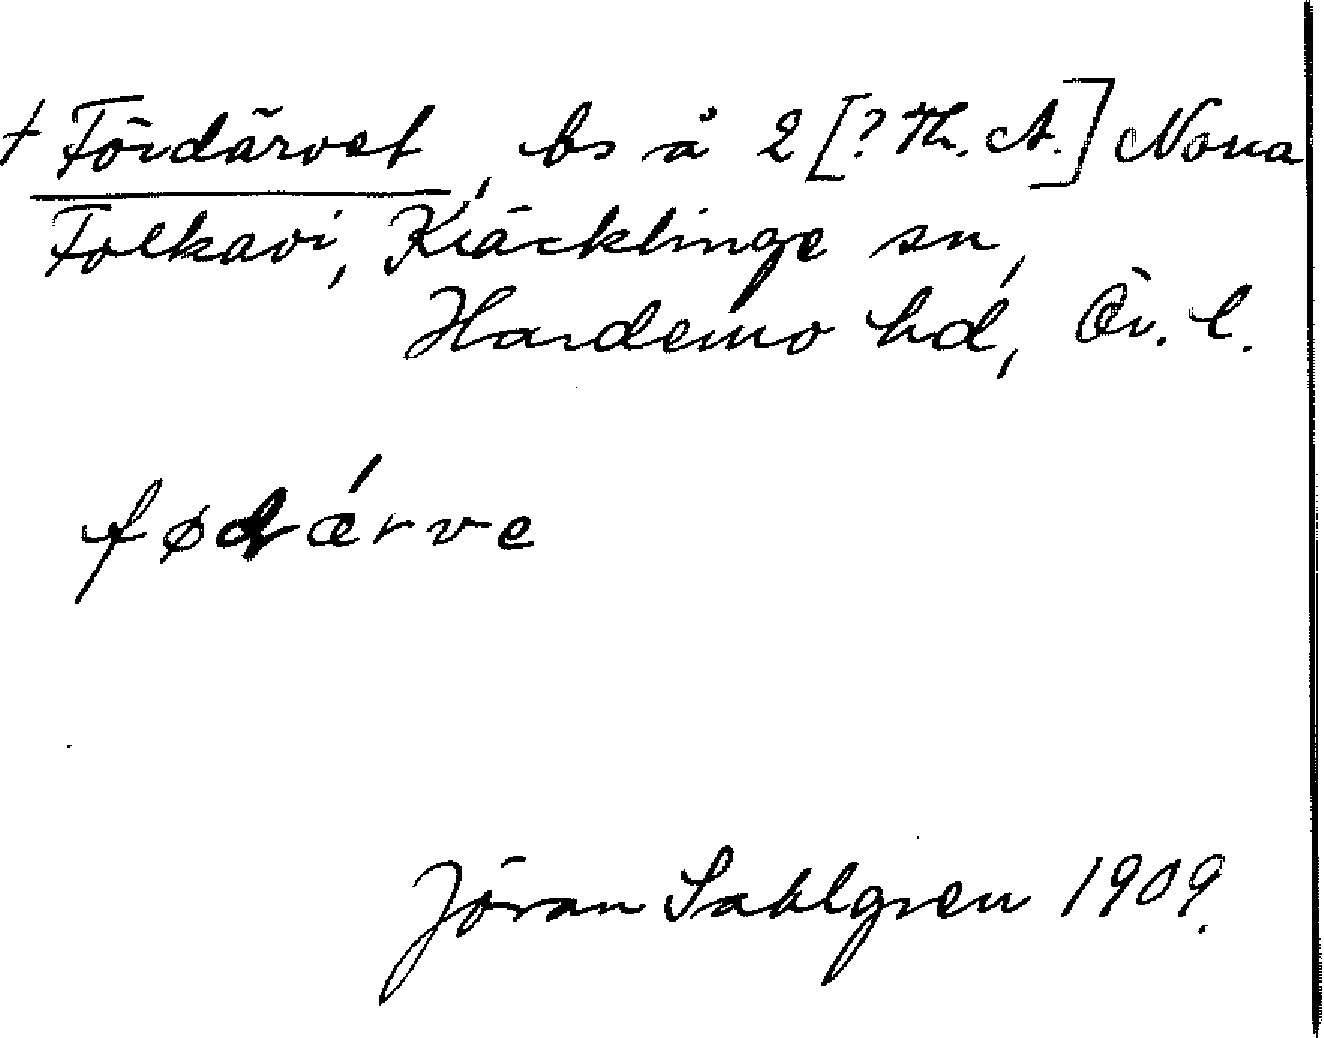 † Fördärvet, bs å 2 [? Th. A.] Norra
Folkavi, Kräcklinge sn,
Hardemo hd, Ör. l.
fødǽrve
Jöran Sahlgren 1909.